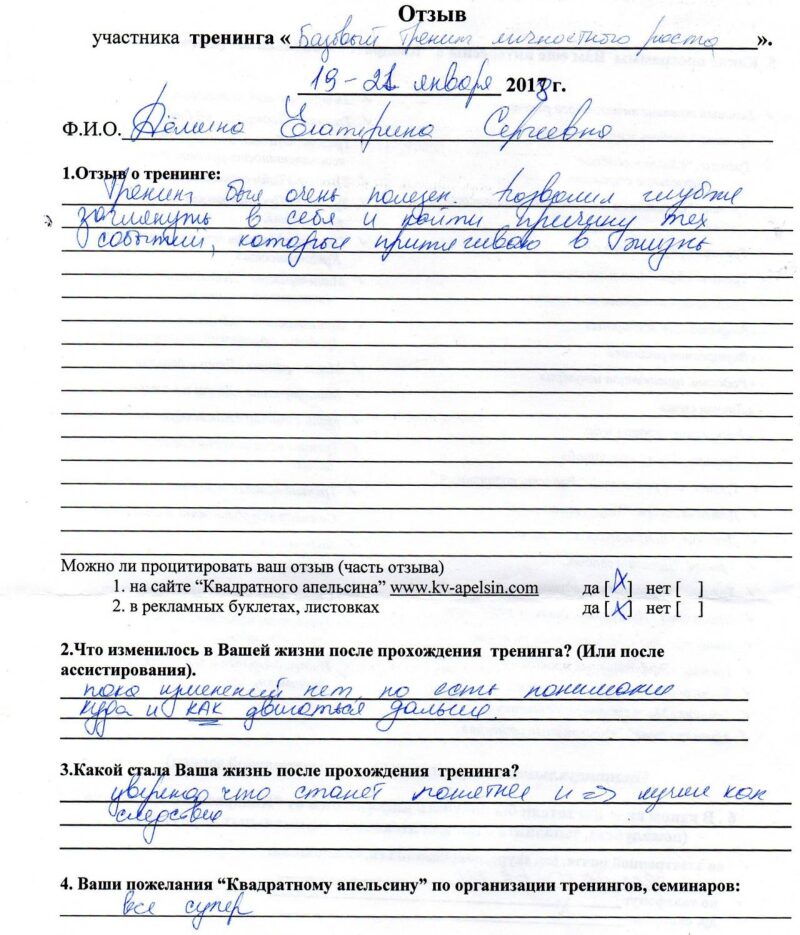 Отзыв
участника тренинга «Базовый тренинг личностного роста».
19-21 января 2018 г.
Ф.И.О. Дёмина Екатерина Сергеевна
1.Отзыв о тренинге:
Тренинг был очень полезен. Позволил глубже
заглянуть в себя и найти причину тех
событий, которые притягиваю в жизнь
Можно ли процитировать ваш отзыв (часть отзыва)
1. на сайте “Квадратного апельсина” www.kv-apelsin.com да [X] нет [ ]
2. в рекламных буклетах, листовках да [X] нет [ ]
2.Что изменилось в Вашей жизни после прохождения тренинга? (Или после
ассистирования).
пока изменений нет, но есть понимание
куда и КАК двигаться дальше.
3.Какой стала Ваша жизнь после прохождения тренинга?
уверена, что станет понятнее и => лучше как
следствие
4. Ваши пожелания “Квадратному апельсину” по организации тренингов, семинаров:
все супер